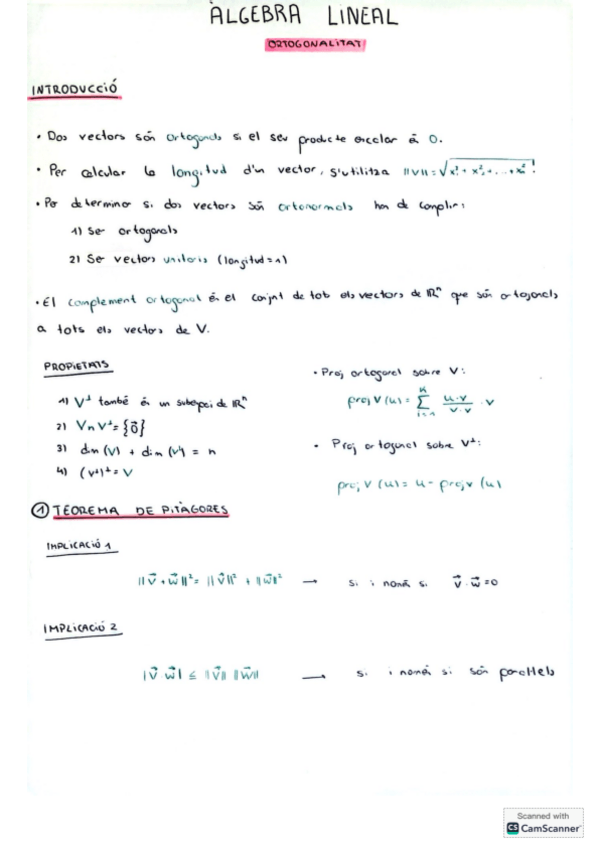 ÀLGEBRA LINEAL
ORTOGONALITAT
INTRODUCCIÓ
· Dos vectors són ortogonals si el seu producte escalar és 0.
· Per calcular la longitud d'un vector, s'utilitza ||v||=√x₁²+x₂²+...+xₙ²!
· Per determinar si dos vectors són ortonormals han de complir:
1) Ser ortogonals
2) Ser vectors unitaris (longitud=1)
· El complement ortogonal és el conjunt de tots els vectors de ℝⁿ que són ortogonals
a tots els vectors de V.
PROPIETATS
1) V⊥ també és un subespai de ℝⁿ
2) V∩V⊥={0⃗}
3) dim (V) + dim (V⊥) = n
4) (V⊥)⊥=V
· Proj ortogonal sobre V:
proj V (u) = Σ (k, i=1) u·v / v·v · v
· Proj ortogonal sobre V⊥:
proj V (u) = u - proj v (u)
① TEOREMA DE PITÀGORES
IMPLICACIÓ 1
||v⃗+w⃗||²=||v⃗||²+||w⃗||² → si i només si v⃗·w⃗=0
IMPLICACIÓ 2
|v⃗ w⃗| ≤ ||v⃗|| ||w⃗|| → si i només si són paral·lels
Scanned with
CS CamScanner